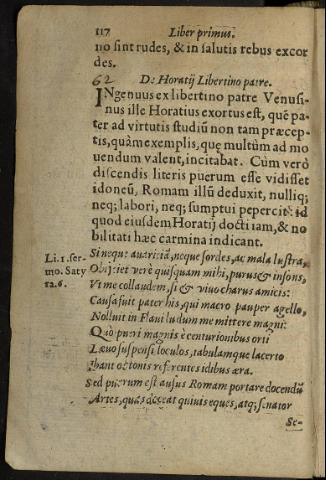 117
Liber primus.
no sint rudes, & in salutis rebus excor
des.
62
De Horatij Libertino patre.
INgenuus ex libertino patre Venusi-
nus ille Horatius exortus est, quē pa-
ter ad virtutis studiū non tam præcep-
tis, quàm exemplis, quę multùm ad mo
uendum valent, incitabat. Cùm verò
discendis literis puerum esse vidisset
idoneū, Romam illū deduxit, nulliq;
neq; labori, neq; sumptui pepercit: id
quod eiusdem Horatij docti iam, & no
bilitati hæc carmina indicant.
Li. 1. ser-
mo. Saty
ra. 6.
Si neque auaritiā, neque sordes, ac mala lustra,
Obijciet verè quisquam mihi, purus & insons,
Vt me collaudem, si & viuo charus amicis:
Causa fuit pater his, qui macro pauper agello,
Noluit in Flaui ludum me mittere magni:
Quò pueri magnis è centurionibus orti
Læuo suspensi loculos, tabulamque lacerto
Ibant octonis referentes idibus æra.
Sed puerum est ausus Romam portare docendū
Artes, quas doceat quiuis eques, atq; senator
Se-